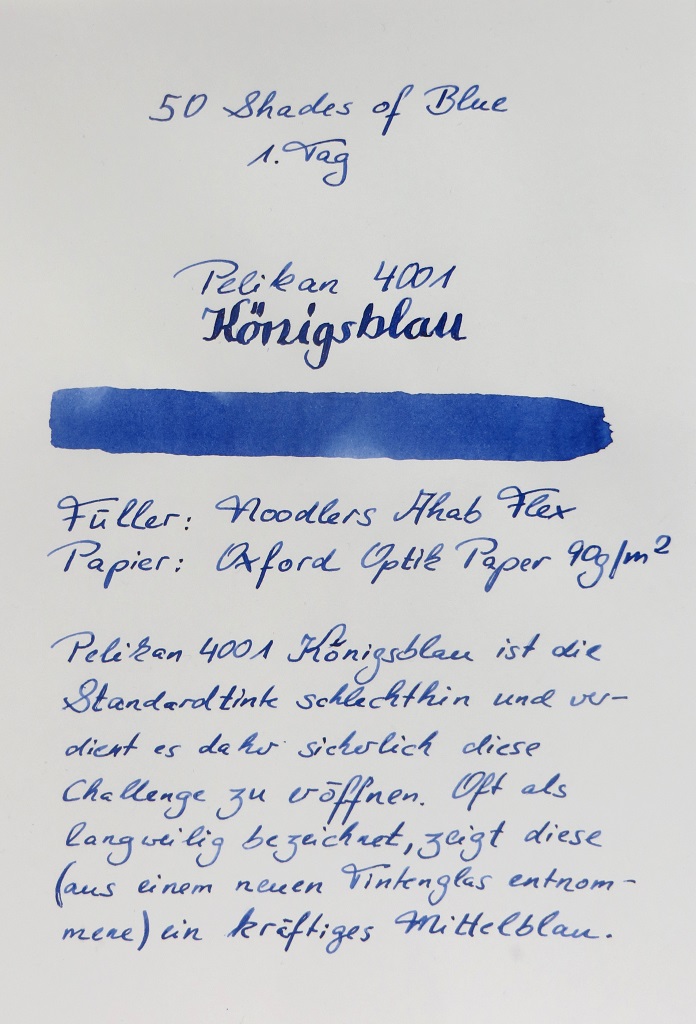 50 Shades of Blue
1. Tag
Pelikan 4001
Königsblau
Füller: Noodlers Ahab Flex
Papier: Oxford Optik Paper 90g/m²
Pelikan 4001 Königsblau ist die
Standardtinte schlechthin und ver-
dient es daher sicherlich diese
Challenge zu eröffnen. Oft als
langweilig bezeichnet, zeigt diese
(aus einem neuen Tintenglas entnom-
mene) ein kräftiges Mittelblau.